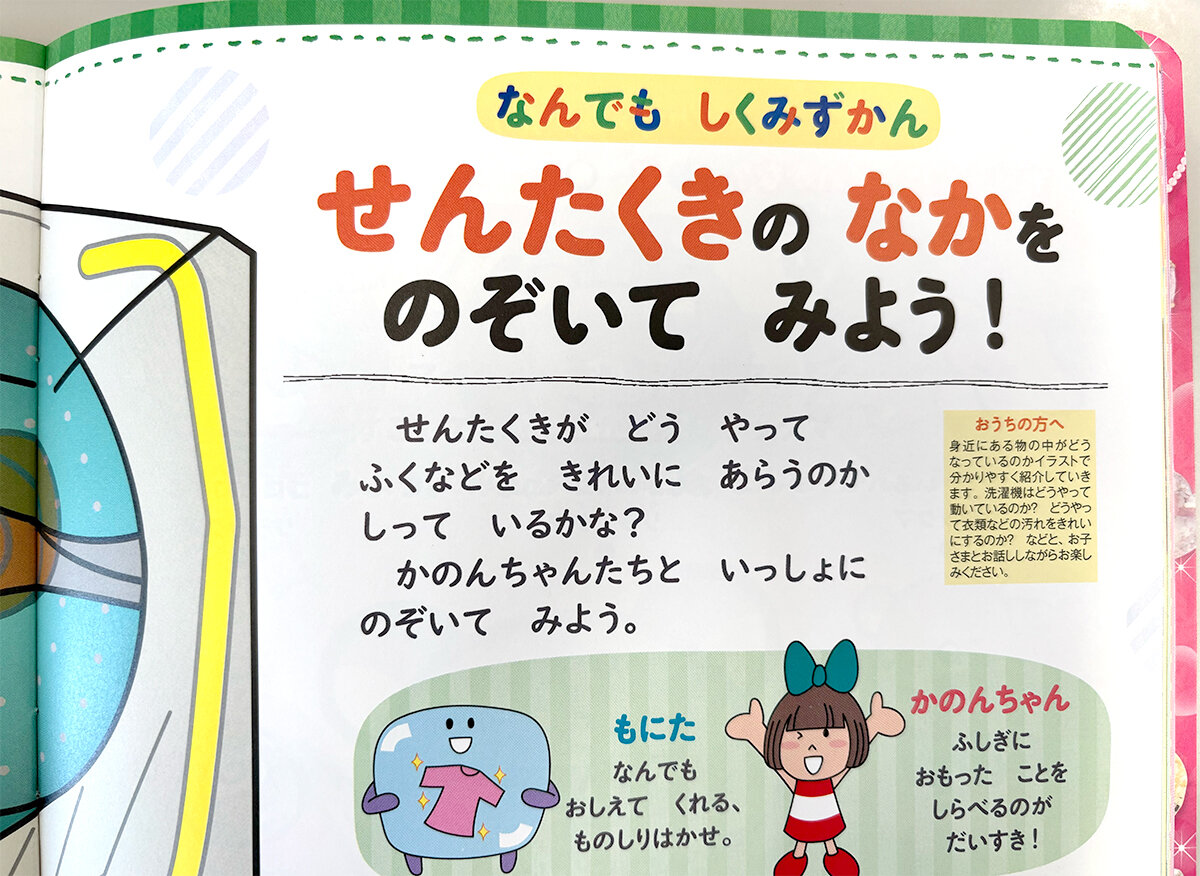 なんでも しくみずかん
せんたくきの なかを
のぞいて みよう！
せんたくきが どう やって
ふくなどを きれいに あらうのか
しって いるかな？
かのんちゃんたちと いっしょに
のぞいて みよう。
おうちの方へ
身近にある物の中がどう
なっているのかイラストで
分かりやすく紹介していき
ます。洗濯機はどうやって
動いているのか？ どうやっ
て衣類などの汚れをきれい
にするのか？ などと、お子
さまとお話ししながらお楽し
みください。
もにた
なんでも
おしえて くれる、
ものしりはかせ。
かのんちゃん
ふしぎに
おもった ことを
しらべるのが
だいすき！